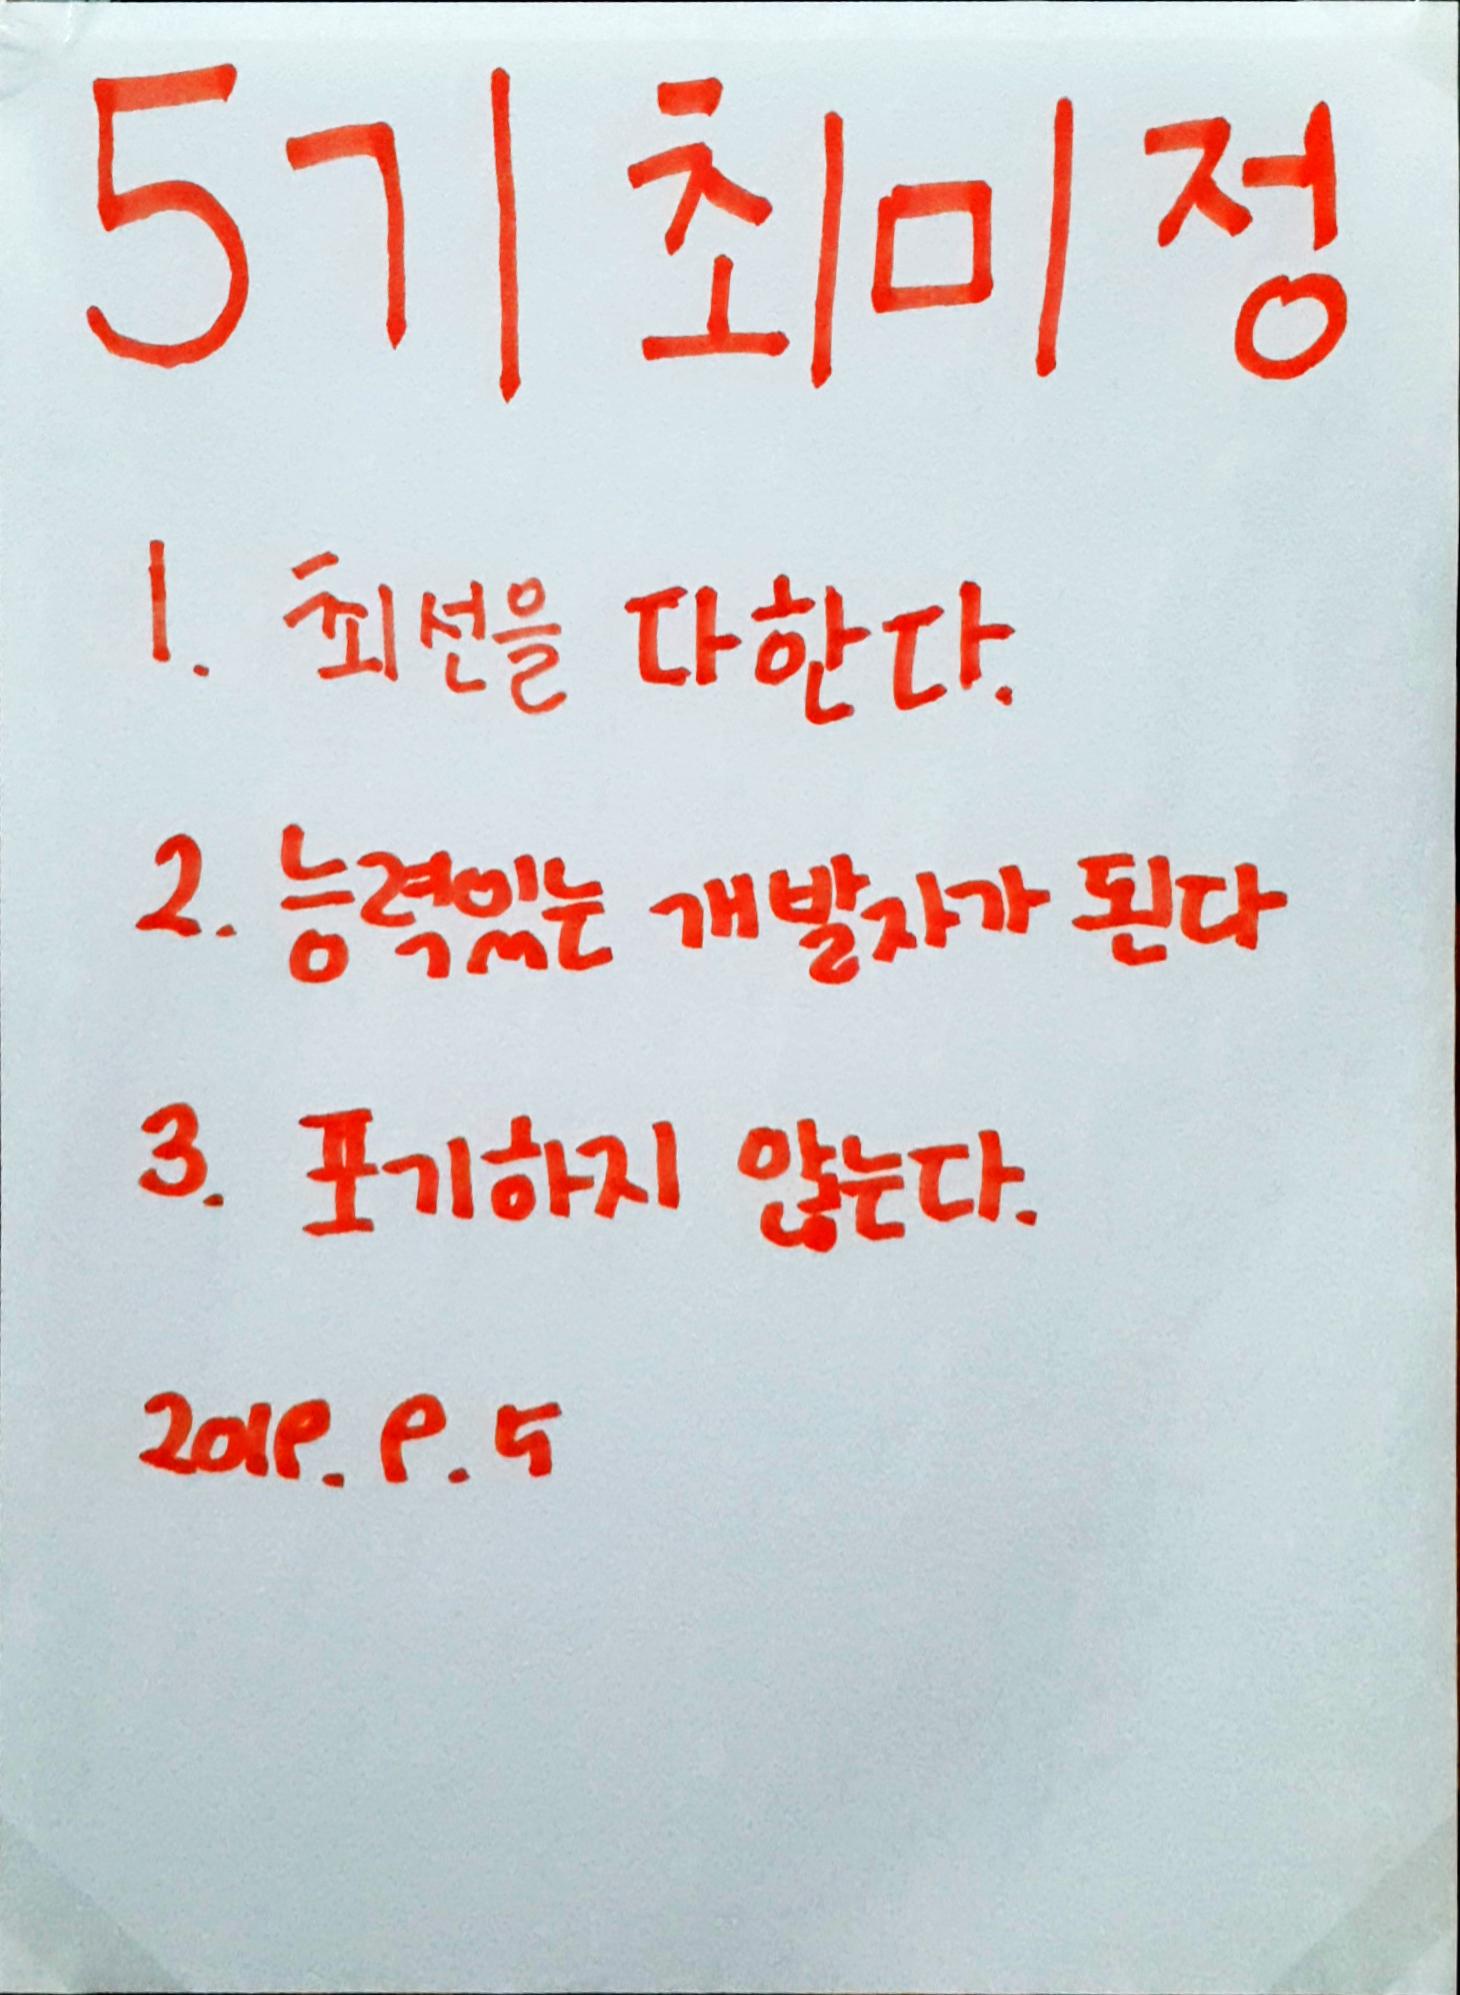 5기 최미정
1. 최선을 다한다.
2. 능력있는 개발자가 된다
3. 포기하지 않는다.
2019. 9. 5